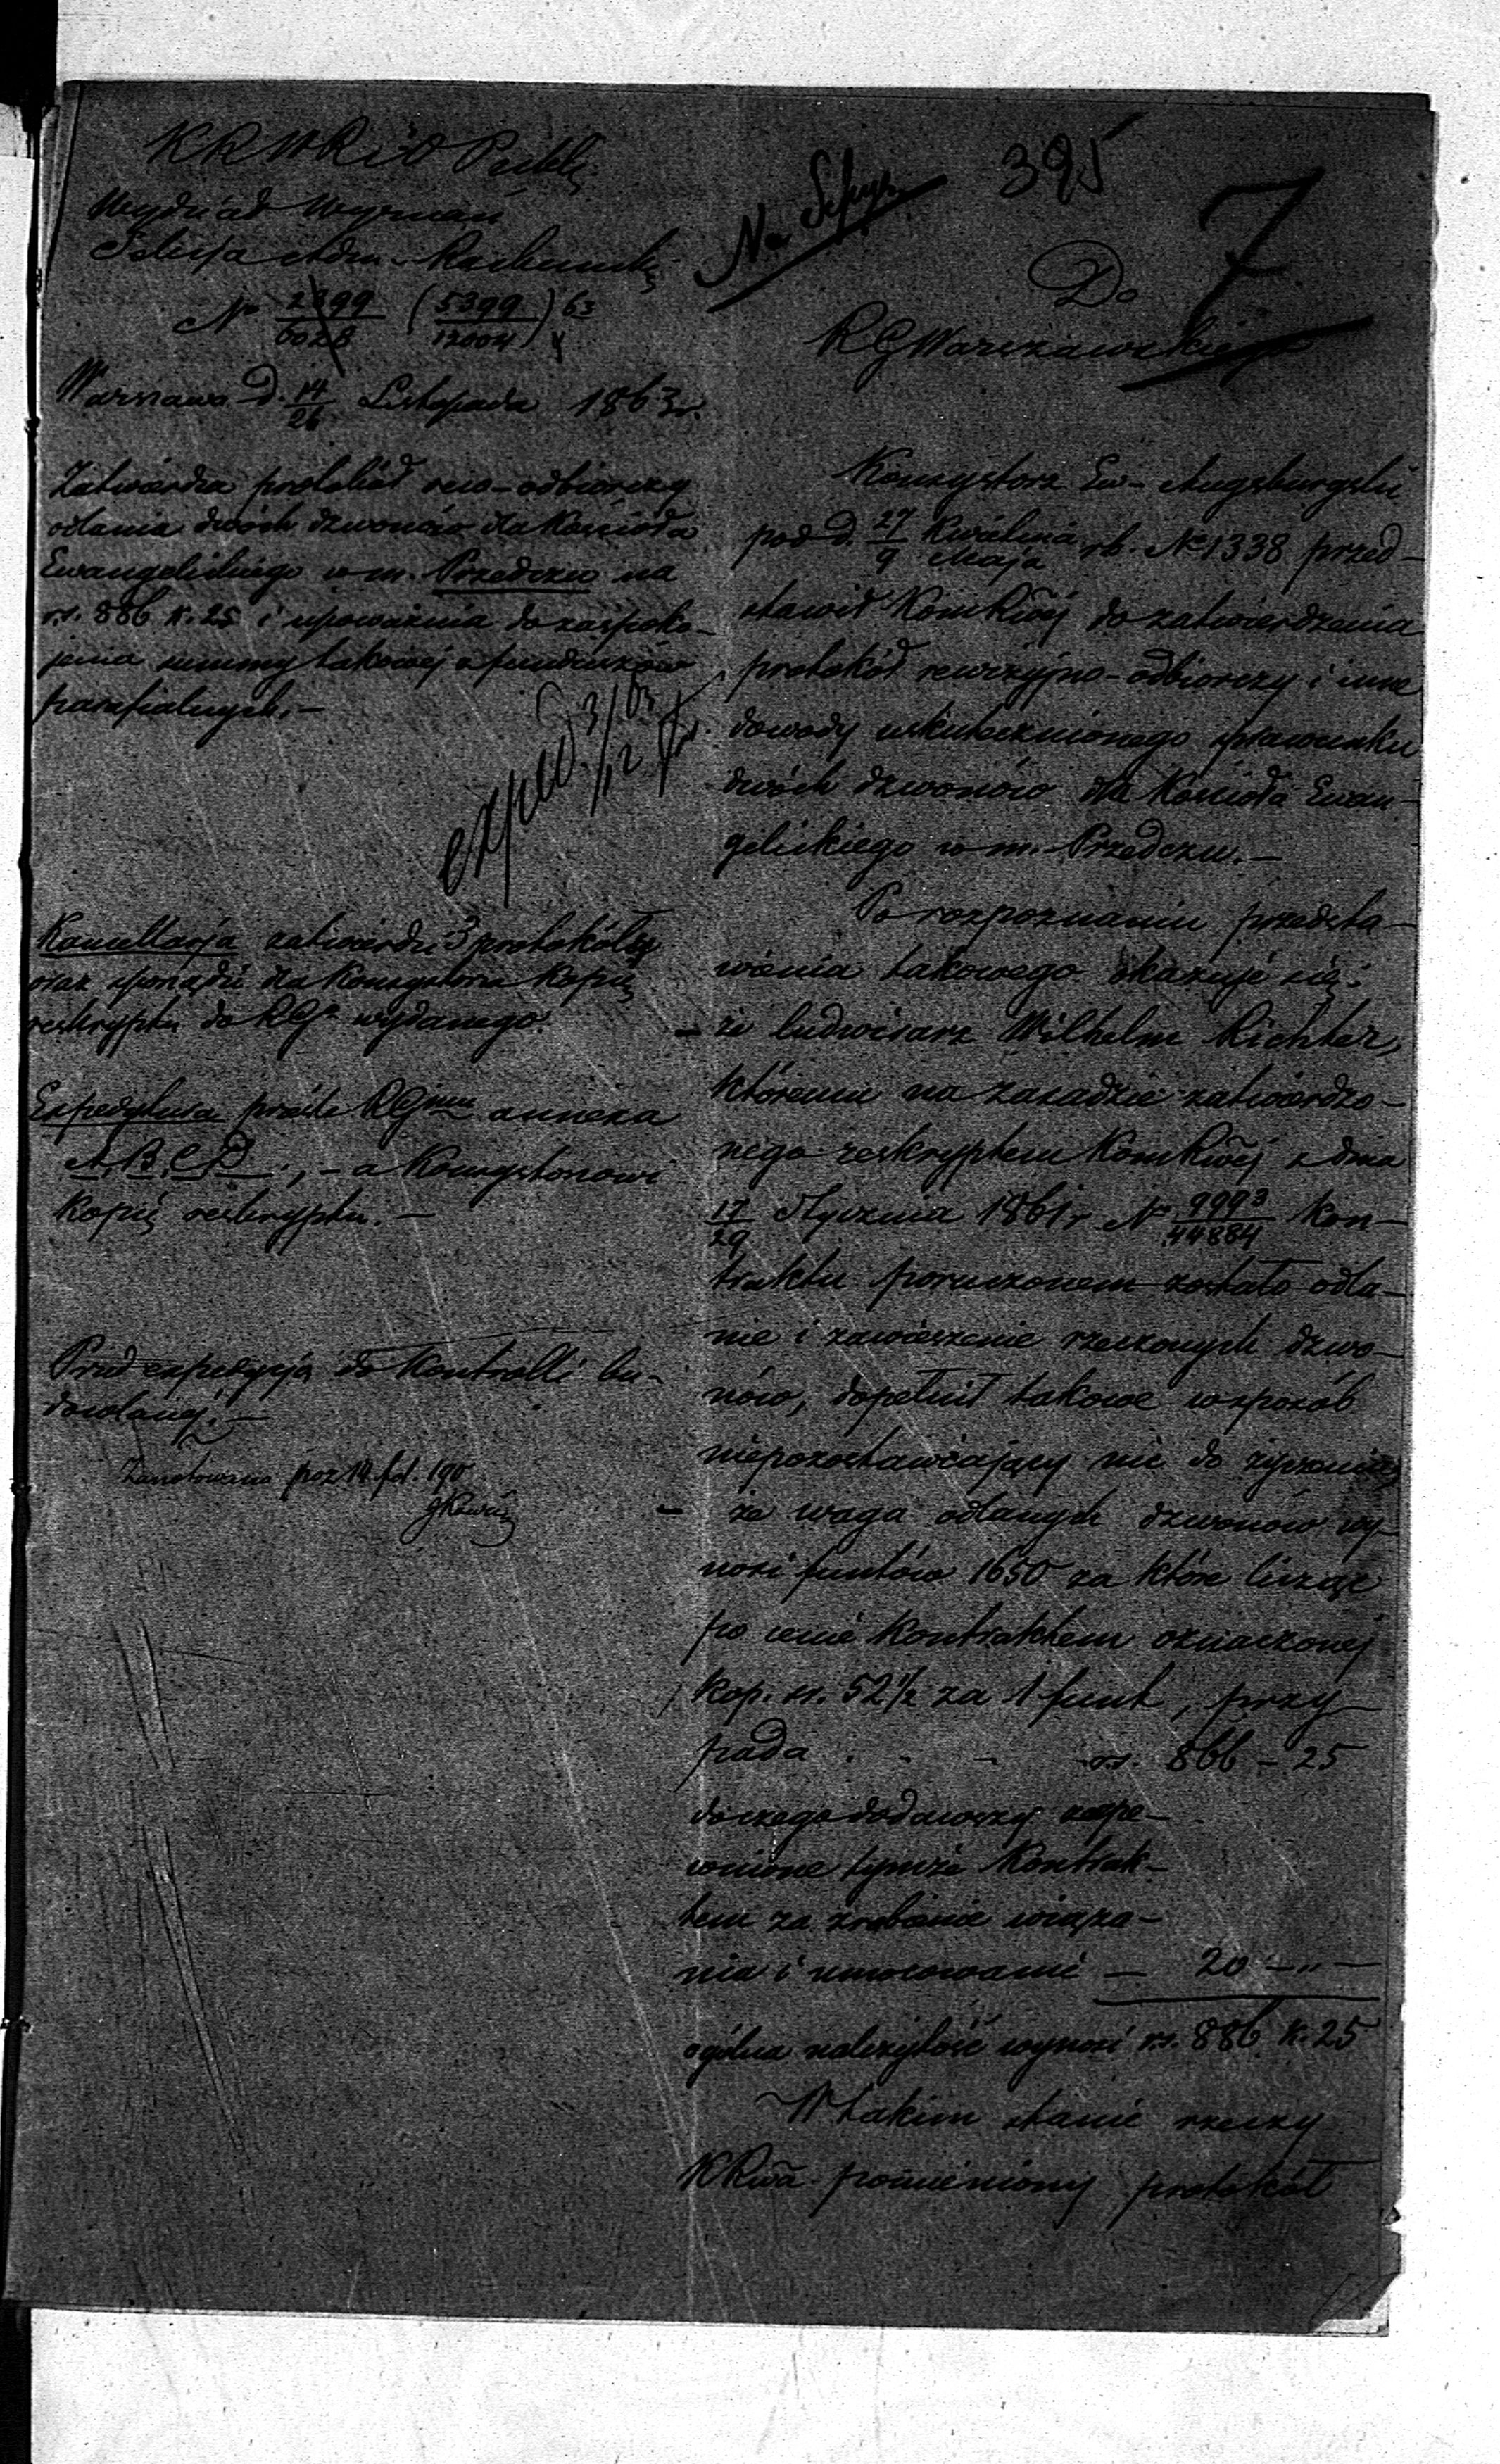 KRWRiO Publ.
Wydział Wyznań
Sekcja Adm.-Rachunk.
N° 2399/6028 (5399/12004) 63
Warszawa d. 14/26 Listopada 1863 r.
Zatwierdza protokół rew-odbiorczy
odlania dwóch dzwonów dla Kościoła
Ewangelickiego w m. Przedczu na
rs. 886 k. 25 i upoważnia do zaspoko-
jenia summy takowej z funduszów
parafialnych.—
exped. 3/12 63
Kancellarja zatwierdzi 3 protokóły
oraz sporządzi dla Konsystorza Kopię
reskryptu do RGo wydanego.
Expedytura prześle RGmu annexa
A. B. C. D., – a Konsystorzowi
Kopię reskryptu.—
Przed expedycją do Kontrolli bu-
dowlanej.—
Zanotowano poz 14 fol. 190
Na Sessyi
395
7
Do
RGWarszawskiego
Konsystorz Ew-Augsburgski
pod d. 27/9 Kwietnia/Maja rb. N° 1338 przed-
stawił KomRwej do zatwierdzenia
protokół rewizyjno-odbiorczy i inne
dowody uskutecznionego sprawunku
dwóch dzwonów dla Kościoła Ewan-
gelickiego w m. Przedczu.—
Po rozpoznaniu przedsta-
wienia takowego okazuje się:
– że ludwisarz Wilhelm Richter,
któremu na zasadzie zatwierdzo-
nego reskryptem KomRwej z dnia
17/29 Stycznia 1861 r. N° 9993/44884 kon-
traktu poruczonem zostało odla-
nie i zawieszenie rzeczonych dzwo-
nów, dopełnił takowe w sposób
niepozostawiający nic do życzenia
– że waga odlanych dzwonów wy-
nosi funtów 1650 za które licząc
po cenie kontraktem oznaczonej
kop. sr. 52½ za 1 funt, przy-
pada . . . rs. 866 – 25
do czego dodawszy zape-
wnione tymże Kontrak-
tem za zrobienie wiąza-
nia i umocowanie — 20 – „ —
ogólna należytość wynosi rs. 886 k. 25
W takim stanie rzeczy
KRwa pomieniony protokół